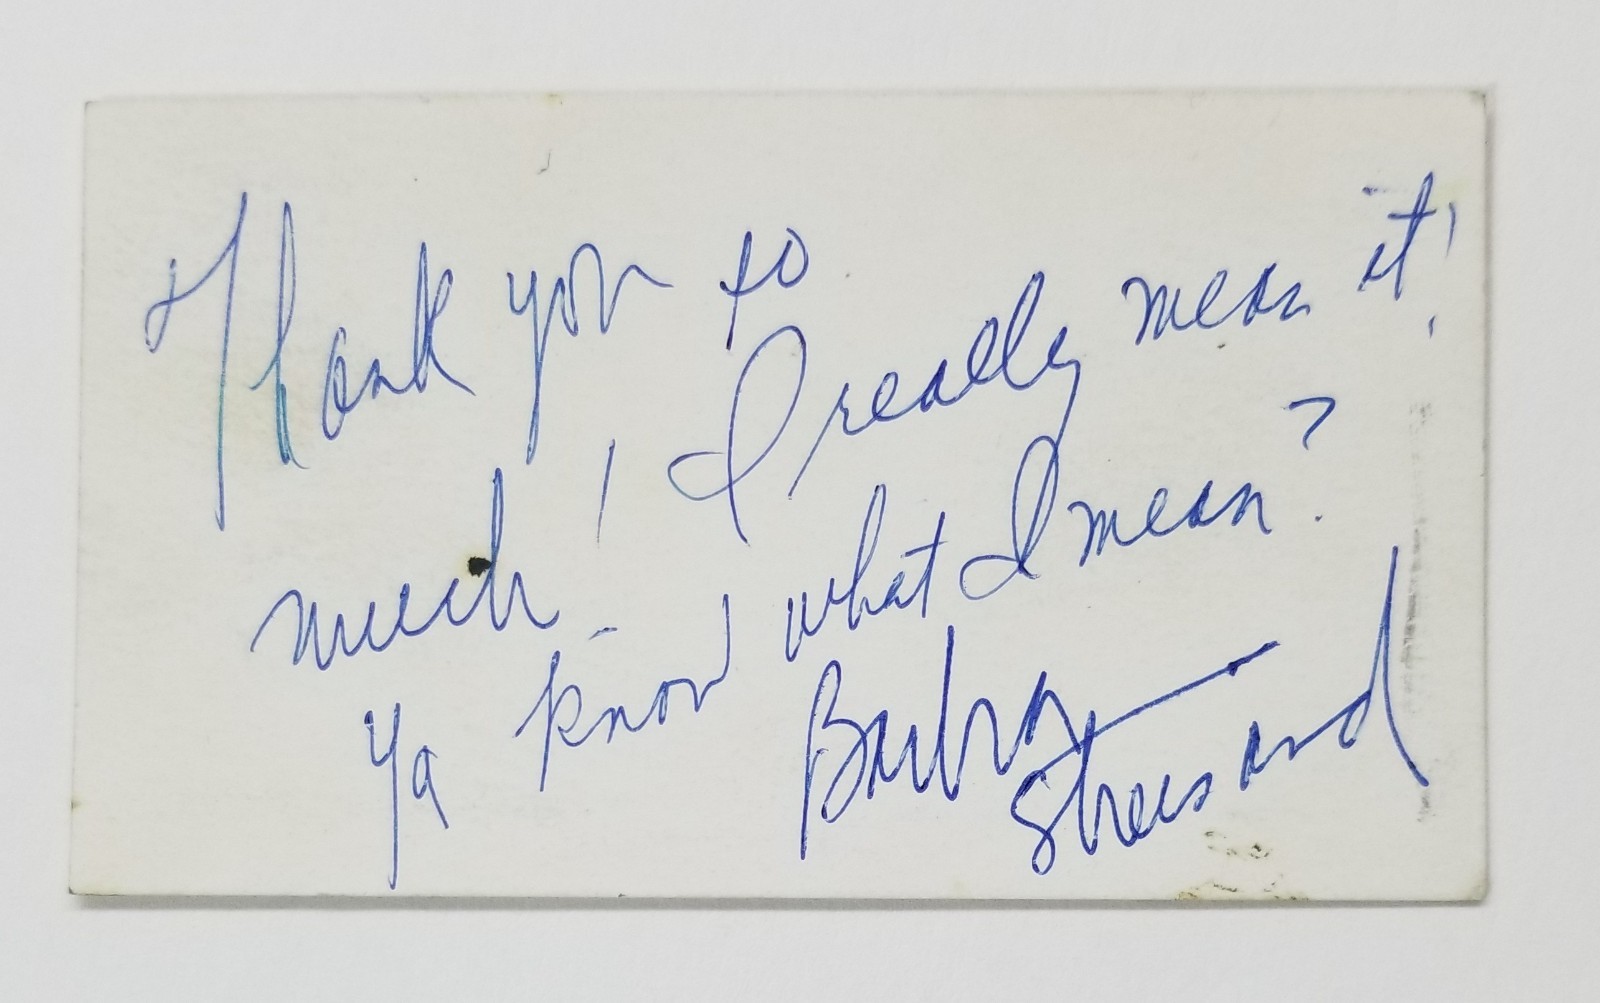 Thank you so
much! I really mean it!
Ya know what I mean?
Barbra
Streisand